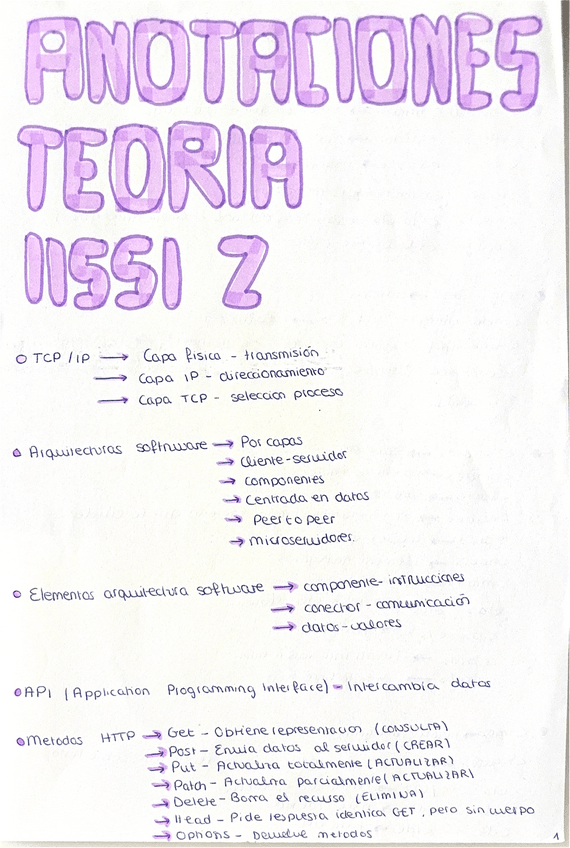 ANOTACIONES
TEORIA
IISSI 2
TCP/IP → Capa física - transmisión
→ Capa IP - direccionamiento
→ Capa TCP - seleccion proceso
Arquitecturas software → Por capas
→ Cliente-servidor
→ componentes
→ Centrada en datos
→ Peer to peer
→ microservidores.
Elementos arquitectura software → componente - instrucciones
→ conector - comunicación
→ datos - valores
API (Application Programming Interface) - Intercambia datos
Metodos HTTP → Get - Obtiene representacion (CONSULTA)
→ Post - Envia datos al servidor (CREAR)
→ Put - Actualiza totalmente (ACTUALIZAR)
→ Patch - Actualiza parcialmente (ACTUALIZAR)
→ Delete - Borra el recurso (ELIMINA)
→ Head - Pide respuesta identica GET, pero sin cuerpo
→ Options - Devuelve metodos
1